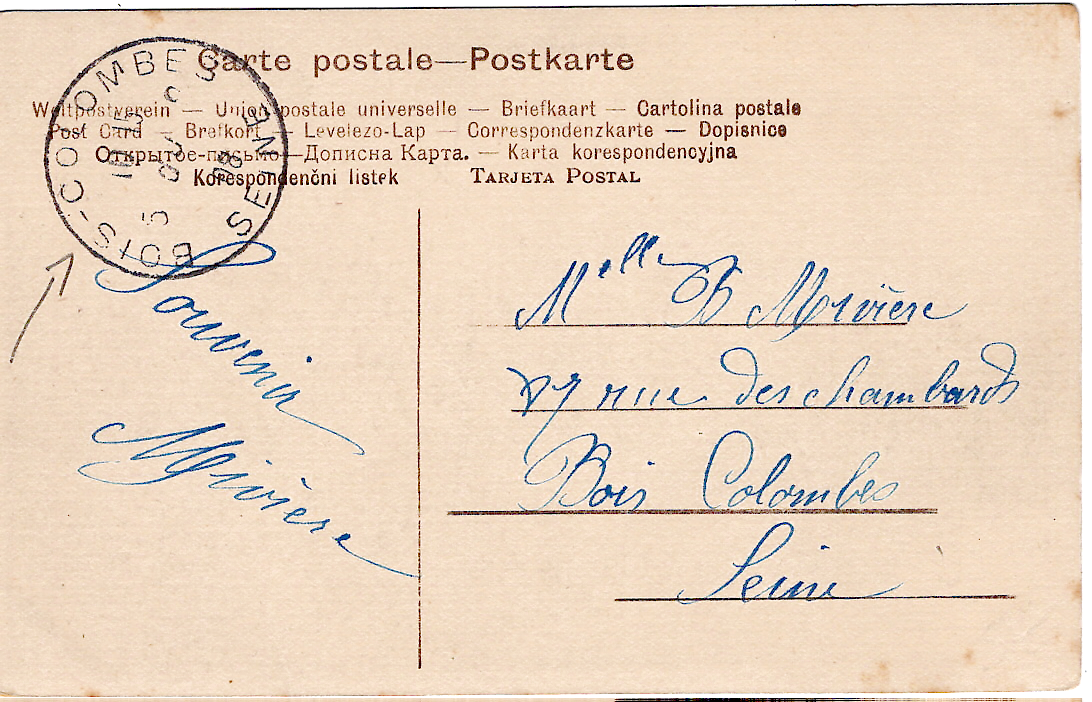 Carte postale—Postkarte
Weltpostverein — Union postale universelle — Briefkaart — Cartolina postale
Post Card — Brefkort — Levelezo-Lap — Correspondenzkarte — Dopisnice
Открытое-письмо—Дописна Карта. — Karta korespondencyjna
Korespondenčni listek TARJETA POSTAL
BOIS-COLOMBES
SEINE
Souvenir
Melle B
rue des chambards
Bois Colombes
Seine